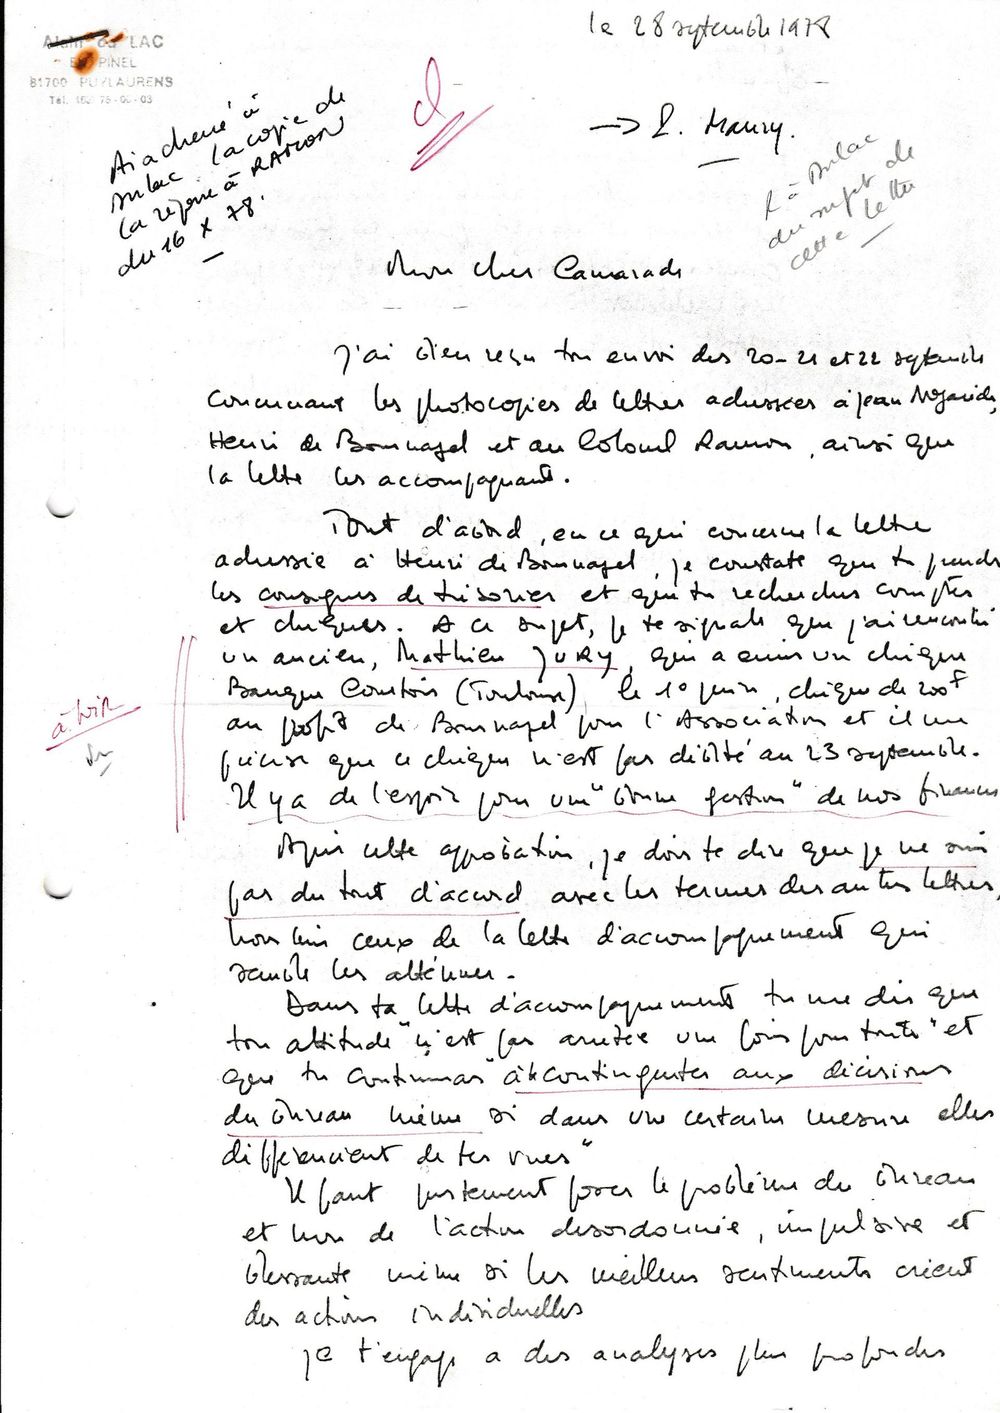 le 28 septembre 1978
Alain du LAC
EN PINEL
81700 PUYLAURENS
Tél. 75-00-03
→ R. Maury.
Ai achené à
Dulac la copie de
la réponse à RAMON
du 16 X 78.
R à Dulac
du sujet de
cette lettre
Mon cher Camarade
J'ai bien reçu ton envoi des 20-21 et 22 septembre
concernant les photocopies de lettres adressées à Jean
Henri de Bonnafel et au Colonel Ramon, ainsi que
la lettre les accompagnant.
Tout d'abord, en ce qui concerne la lettre
adressée à Henri de Bonnafel, je constate que tu prends
les consignes de trésorier et que tu recherches comptes
et chèques. A ce sujet, je te signale que j'ai rencontré
un ancien, Mathieu JURY, qui a émis un chèque
Banque Courtois (Toulouse) le 1° juin, chèque de 200F
au profit de Bonnafel pour l'Association et il me
précise que ce chèque n'est pas débité au 23 septembre.
Il y a de l'espoir pour une "bonne gestion" de nos finances
à voir
Après cette approbation, je dois te dire que je ne suis
pas du tout d'accord avec les termes des autres lettres,
hors bien ceux de la lettre d'accompagnement qui
semble les atténuer.
Dans ta lettre d'accompagnement tu me dis que
ton attitude "n'est pas arrêtée une fois pour toute" et
que tu continueras "à te contingenter aux décisions
du bureau même si dans une certaine mesure elles
différencient de tes vues"
Il faut justement poser le problème du bureau
et non de l'action désordonnée, impulsive et
blessante même si les meilleurs sentiments créent
des actions individuelles
je t'engage a des analyses plus profondes